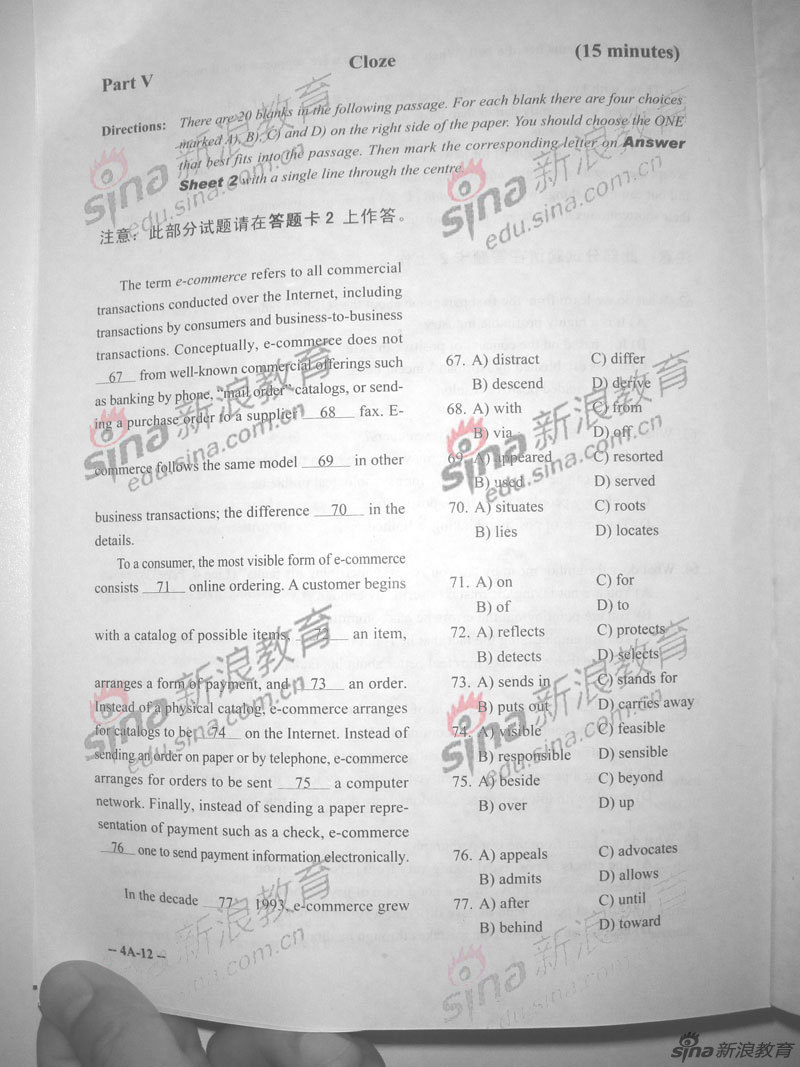 Part V
Cloze
(15 minutes)
Directions: There are 20 blanks in the following passage. For each blank there are four choices
marked A), B), C) and D) on the right side of the paper. You should choose the ONE
that best fits into the passage. Then mark the corresponding letter on Answer
Sheet 2 with a single line through the centre.
注意：此部分试题请在答题卡 2 上作答。
The term e-commerce refers to all commercial
transactions conducted over the Internet, including
transactions by consumers and business-to-business
transactions. Conceptually, e-commerce does not
67 from well-known commercial offerings such
as banking by phone, “mail order” catalogs, or send-
ing a purchase order to a supplier 68 fax. E-
commerce follows the same model 69 in other
business transactions; the difference 70 in the
details.
To a consumer, the most visible form of e-commerce
consists 71 online ordering. A customer begins
with a catalog of possible items, 72 an item,
arranges a form of payment, and 73 an order.
Instead of a physical catalog, e-commerce arranges
for catalogs to be 74 on the Internet. Instead of
sending an order on paper or by telephone, e-commerce
arranges for orders to be sent 75 a computer
network. Finally, instead of sending a paper repre-
sentation of payment such as a check, e-commerce
76 one to send payment information electronically.
In the decade 77 1993, e-commerce grew
67. A) distract C) differ
B) descend D) derive
68. A) with C) from
B) via D) off
69. A) appeared C) resorted
B) used D) served
70. A) situates C) roots
B) lies D) locates
71. A) on C) for
B) of D) to
72. A) reflects C) protects
B) detects D) selects
73. A) sends in C) stands for
B) puts out D) carries away
74. A) visible C) feasible
B) responsible D) sensible
75. A) beside C) beyond
B) over D) up
76. A) appeals C) advocates
B) admits D) allows
77. A) after C) until
B) behind D) toward
– 4A-12 –
sina 新浪教育
edu.sina.com.cn
sina 新浪教育
edu.sina.com.cn
sina 新浪教育
edu.sina.com.cn
sina 新浪教育
edu.sina.com.cn
sina 新浪教育
edu.sina.com.cn
sina 新浪教育
edu.sina.com.cn
sina 新浪教育
edu.sina.com.cn
sina 新浪教育
edu.sina.com.cn
sina 新浪教育